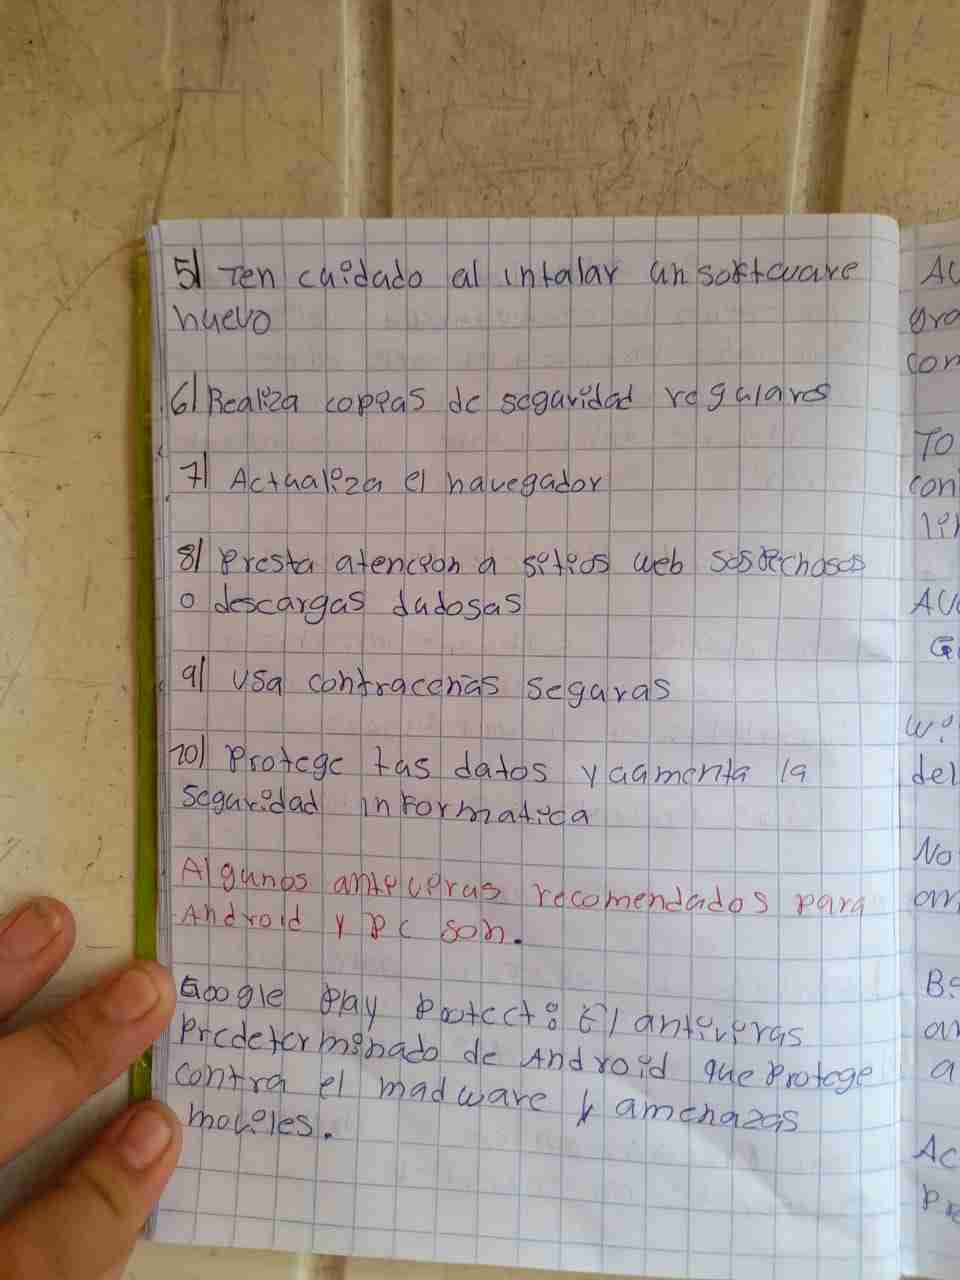 5) Ten cuidado al intalar un software
nuevo
6) Realiza copias de seguridad regulares
7) Actualiza el navegador
8) Presta atencion a sitios web sospechosos
o descargas dudosas
9) Usa contracenas seguras
10) Protege tus datos y aumenta la
seguridad informatica
Algunos antiverus recomendados para
Android y PC son.
Google Play Protect: El antivirus
Predeterminado de Android que Protege
contra el madware y amenazas
moviles.
AC
gra
com
TO
con
lin
del
No
an
a
Ac
Pro